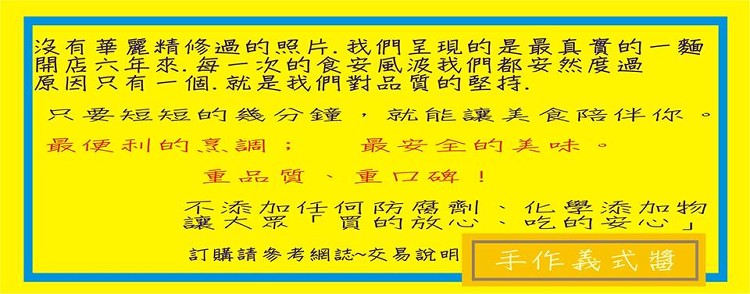 沒有華麗精修過的照片.我們呈現的是最真實的一麵
開店六年來.每一次的食安風波我們都安然度過
原因只有一個.就是我們對品質的堅持.
只要短短的幾分鐘，就能讓美食陪伴你。
最便利的烹調； 最安全的美味。
重品質、重口碑！
不添加任何防腐劑、化學添加物
讓大眾「買的放心、吃的安心」
訂購請參考網誌~交易說明
手作義式醬